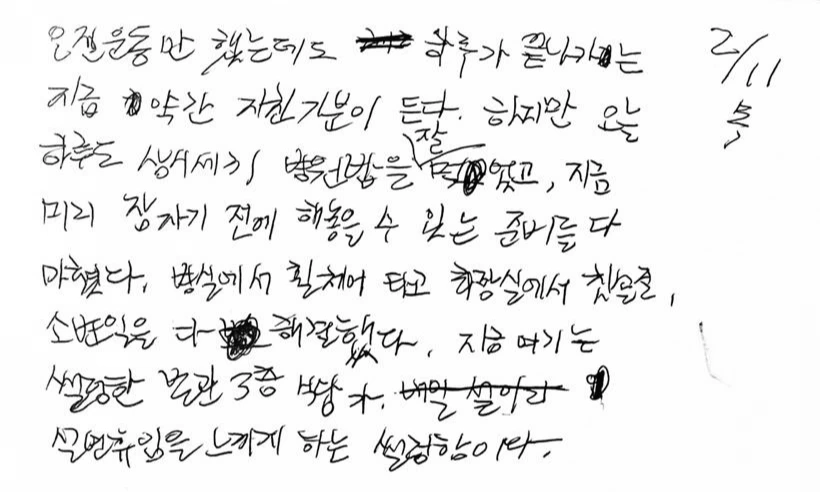 오전운동만 했는데도 하루가 끝나가는
지금 약간 지친기분이 든다. 하지만 오늘
하루도 삼시세끼 병원밥을 잘 먹었고, 지금
미리 잠자기 전에 해놓을 수 있는 준비를 다
마쳤다. 병실에서 휠체어 타고 화장실에서
소변일을 다 해결했다. 지금 여기는
썰렁한 별관 3층
설연휴임을 느끼게 하는 썰렁함이다.
2/11